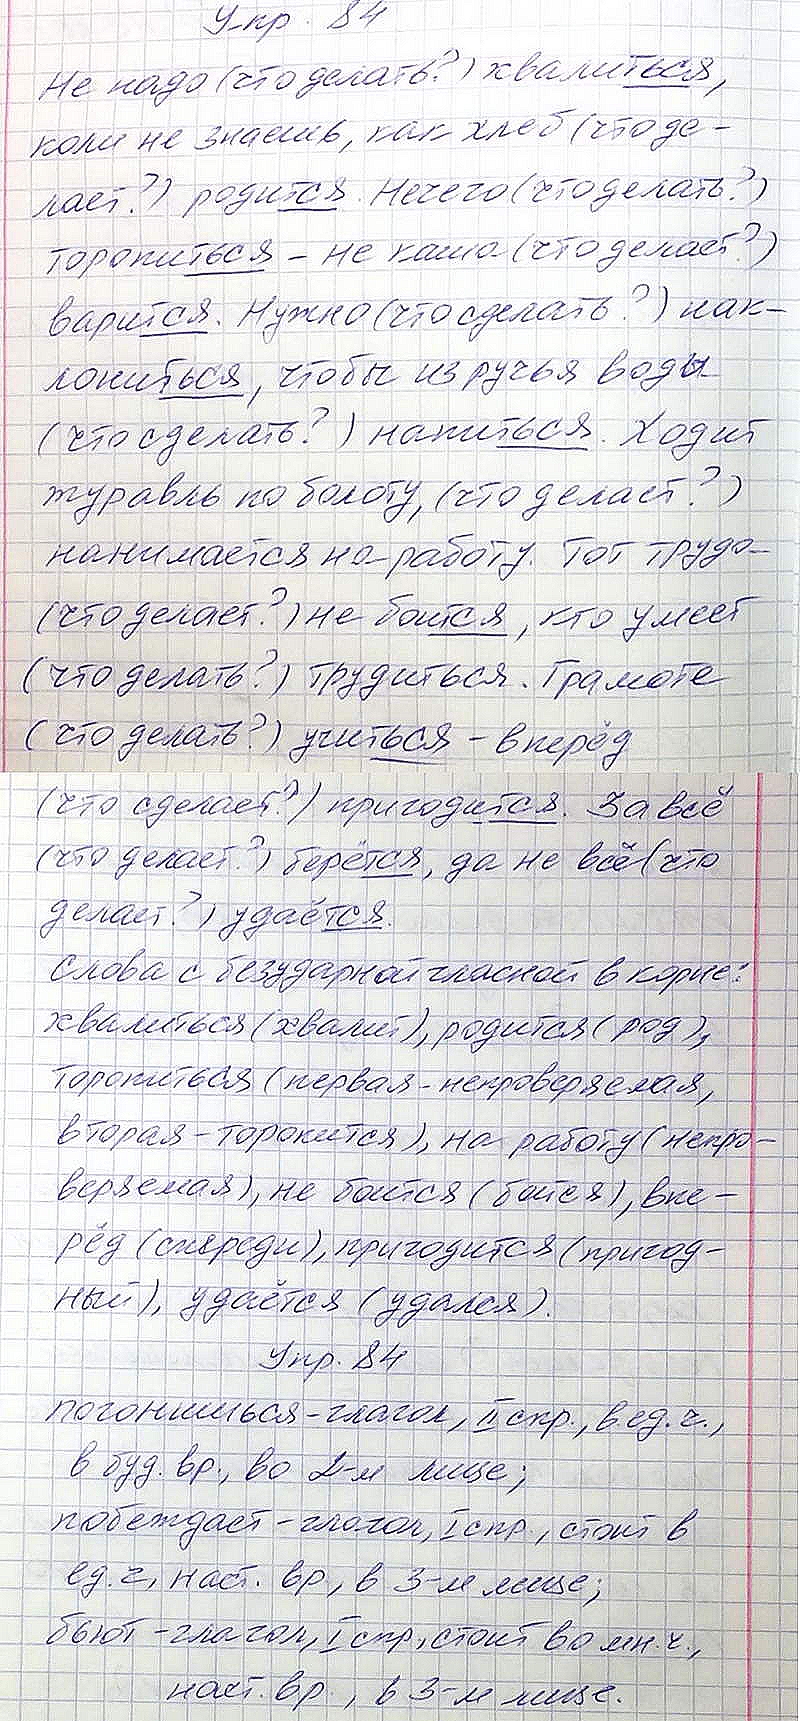 Упр. 84
Не надо (что делать?) хвалиться,
коли не знаешь, как хлеб (что де-
лает?) родится. Нечего (что делать?)
торопиться – не каша (что делает?)
варится. Нужно (что сделать?) нак-
лониться, чтобы из ручья воды
(что сделать?) напиться. Ходит
журавль по болоту, (что делает?)
нанимается на работу. Тот труда
(что делает?) не боится, кто умеет
(что делать?) трудиться. Грамоте
(что делать?) учиться – вперёд
(что сделает?) пригодится. За всё
(что делает?) берётся, да не всё (что
делает?) удаётся.
Слова с безударной гласной в корне:
хвалиться (хвалит), родится (род),
торопиться (первая - непроверяемая,
вторая - торопится), на работу (непро-
веряемая), не боится (бойся), впе-
рёд (спереди), пригодится (пригод-
ный), удаётся (удался).
Упр. 84
погонишься - глагол, II спр., в ед. ч.,
в буд. вр., во 2-м лице;
побеждает - глагол, I спр., стоит в
ед. ч, наст. вр., в 3-м лице;
бьют - глагол, I спр., стоит во мн. ч.,
наст. вр., в 3-м лице.